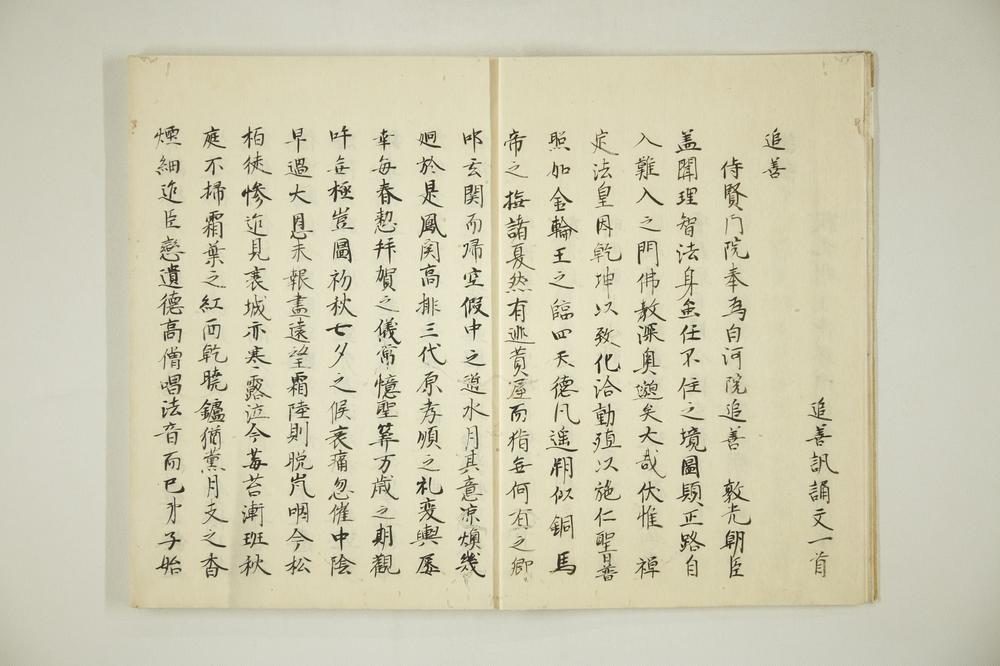 追善諷誦文一首
追善
待賢門院奉為白河院追善　敦光朝臣
盖聞理智法身無住不住之境圓顕正路自
入難入之門佛教深奥邈矣大哉伏惟　禅
定法皇因乾坤以致化洽動殖以施仁聖日普
照加金輪王之臨四天德凡遥翔似銅馬
帝之撫諸夏然有逃黄屋而指無何有之郷
叩玄関而帰空假中之道水月其意凉煩幾
廻於是鳳闕高排三代原孝順之礼变輿屡
幸毎春懃拝賀之儀常憶聖筭万歳之期觀
吁無極豈圖初秋七夕之候哀痛忽催中陰
早過大恩未報盡遠望霜陸則脱屣明今松
栢徒惨近見襄城亦寒露泣今莓苔漸斑秋
庭不掃霜葉之紅両乾曉鑪猶薫月支之香
煙細近臣戀遺德高僧唱法音而已弟子始